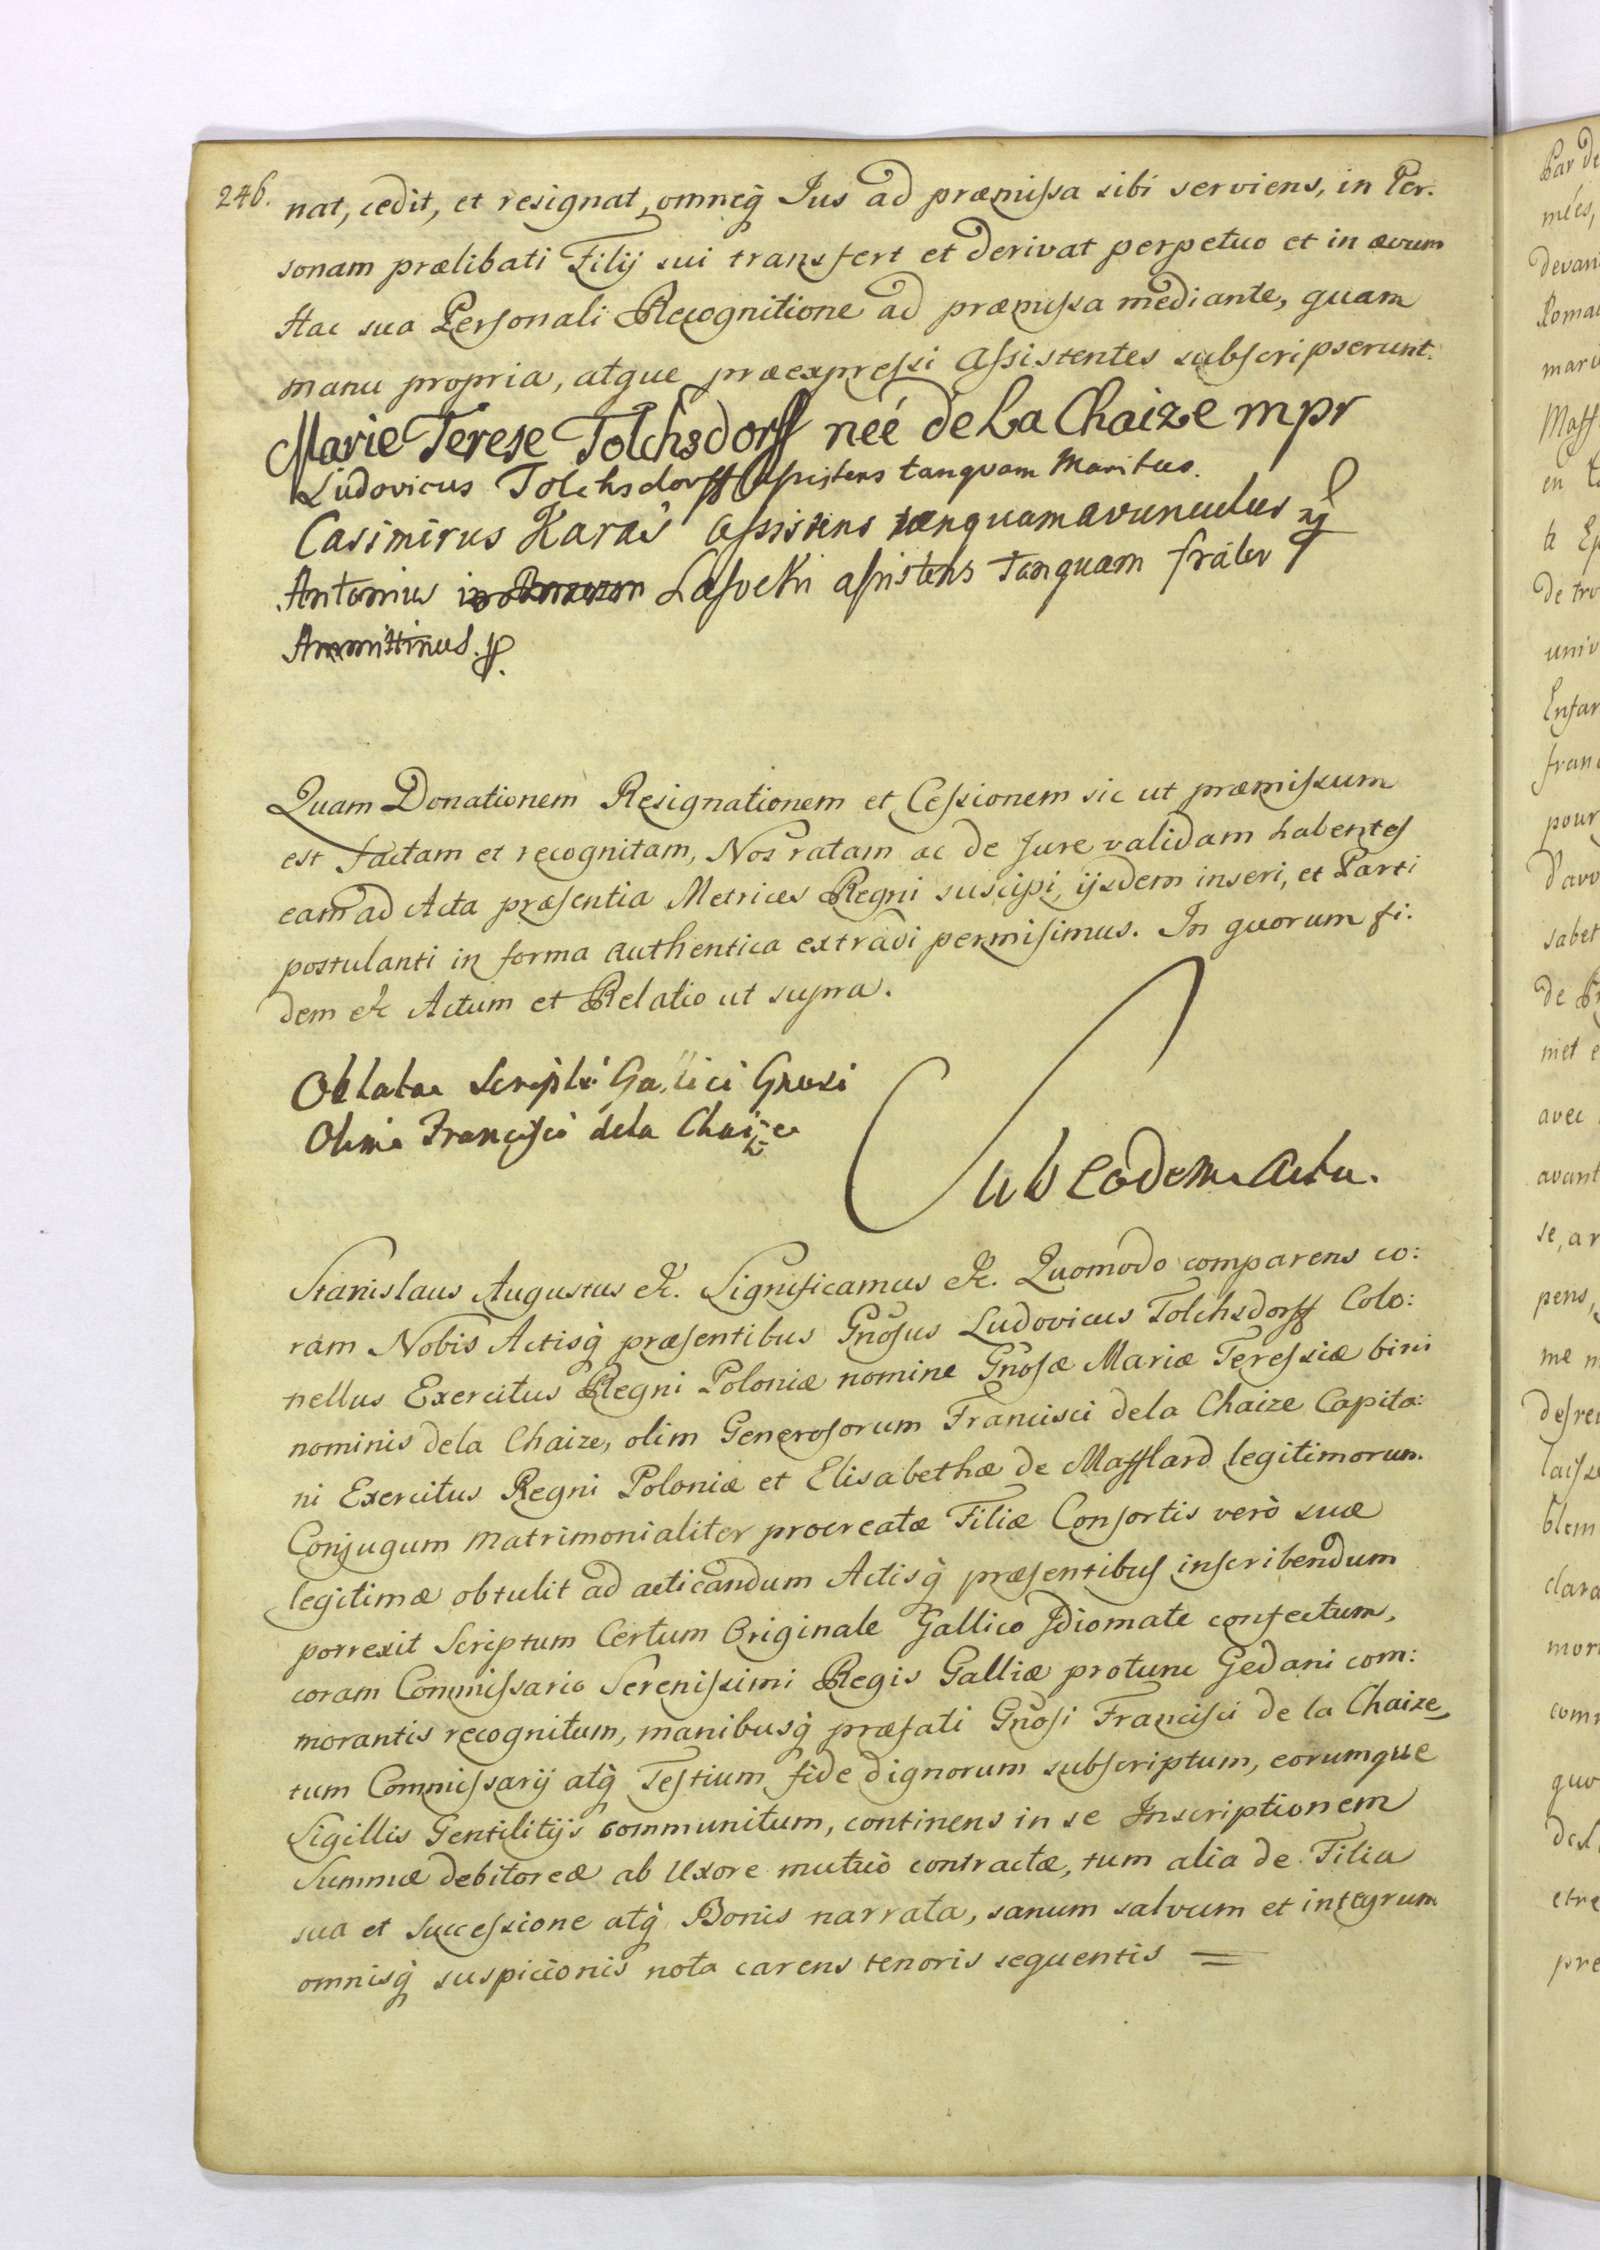 246.
nat, cedit, et resignat, omneq̃ Ius ad præmissa sibi serviens, in Per-
sonam prælibati Filij sui transfert et derivat perpetuo et in ævum
Hac sua Personali Recognitione ad præmissa mediante, quam
manu propria, atque præexpressi Assistentes subscripserunt.
Marie Terese Tolchsdorff neé de La Chaize mpr
Ludovicus Tolchsdorff Assistens tanquam Maritus.
Casimirus Karaś assistens tanquam avunculus
Antonius Lasocki assistens Tanquam frater
Ammittinus.
Quam Donationem Resignationem et Cessionem sic ut præmissum
est factam et recognitam, Nos ratam ac de Jure validam habentes
eam ad Acta præsentia Metrices Regni suscipi, ijsdem inseri, et Parti
postulanti in forma authentica extradi permisimus. In quorum fi:
dem &c Actum et Relatio ut supra.
Oblatae Scripti Gallici Gnosi
Olim Francisci dela Chaize
Sub eodem Actu.
Stanislaus Augustus &c. Significamus &c. Quomodo comparens co:
ram Nobis Actisq̃ præsentibus Gñosus Ludovicus Tolchsdorff Colo:
nellus Exercitus Regni Poloniæ nomine Gñosæ Mariæ Teressiæ bini
nominis dela Chaize, olim Generosorum Francisci dela Chaize Capita:
ni Exercitus Regni Poloniæ et Elisabethæ de Mafflard legitimorum
Conjugum matrimonialiter procreatæ Filiæ Consortis verò suæ
legitimæ obtulit ad acticandum Actisq̃ præsentibus inscribendum
porrexit Scriptum Certum Originale Gallico Jdiomate confectum,
coram Commissario Serenissimi Regis Galliæ protunc Gedani com:
morantis recognitum, manibusq̃ præfati Gñosi Francisci de la Chaize,
tum Commissarij atq̃ Testium fide dignorum subscriptum, eorumque
Sigillis Gentilitijs communitum, continens in se Inscriptionem
Summæ debitoreæ ab Uxore mutuò contractæ, tum alia de Filia
sua et Successione atq̃ Bonis narrata, sanum salvum et integrum
omnisq̃ suspicionis nota carens tenoris sequentis =